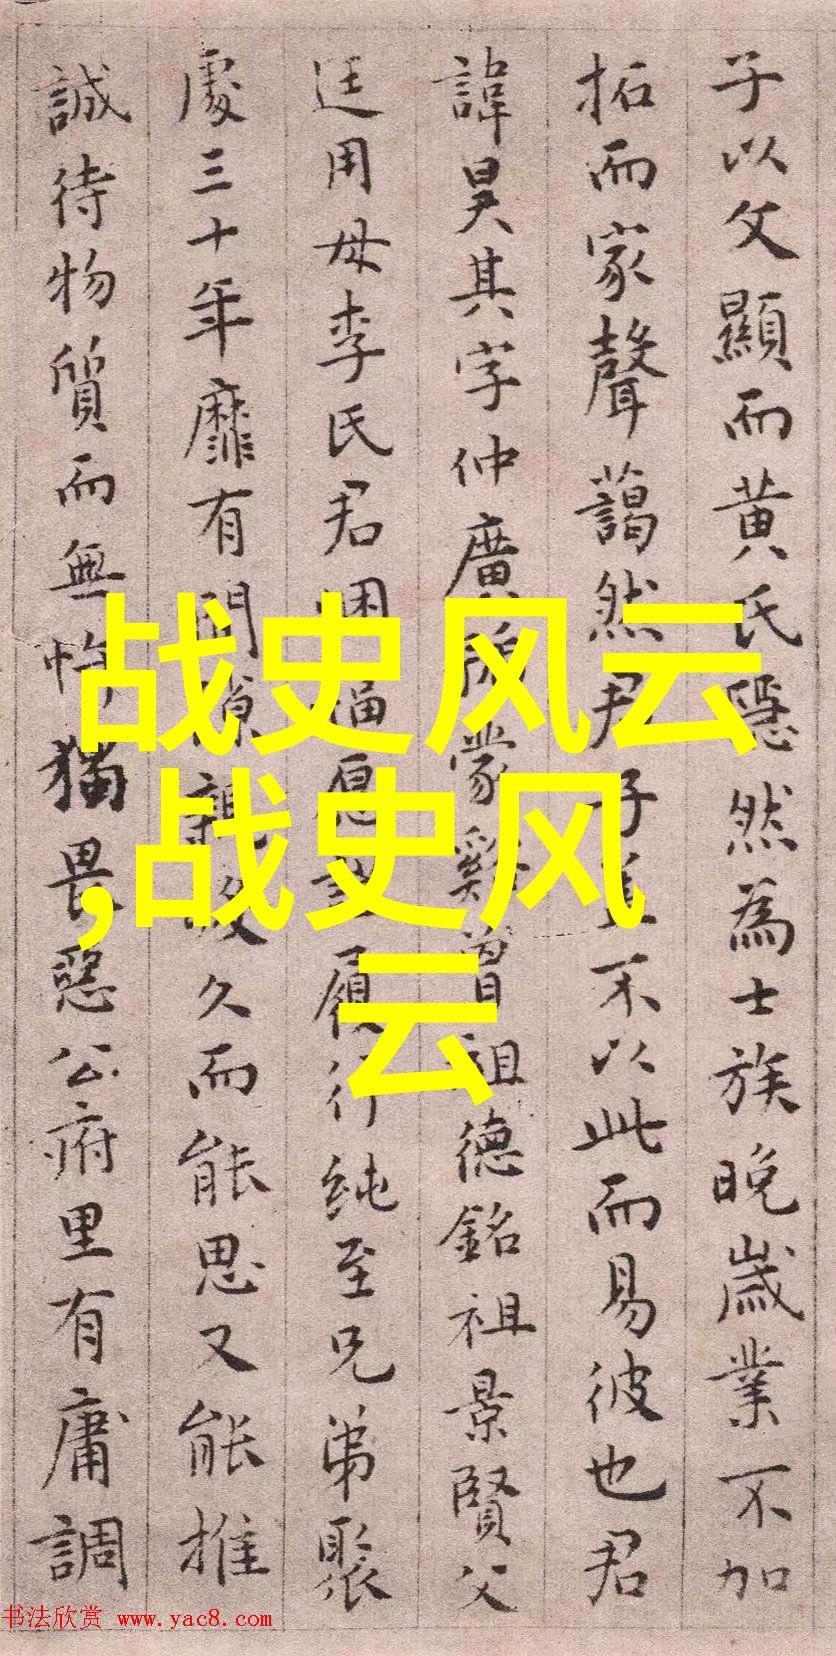 子以父顯而黄氏隱然為士族晚歲業不加
拓而家聲藹然君子蓋不以此而易彼也君
諱昊其字仲廣蒙谿曾祖德銘祖景賢父
廷用母李氏君悃愊履行純至兄弟聚
處三十年靡有間隙親歿久而能思又能推
誠待物質而無忤猶畏惡公府里有庸調
战史风云
,战史风
云
书法欣赏 www.yac8.com